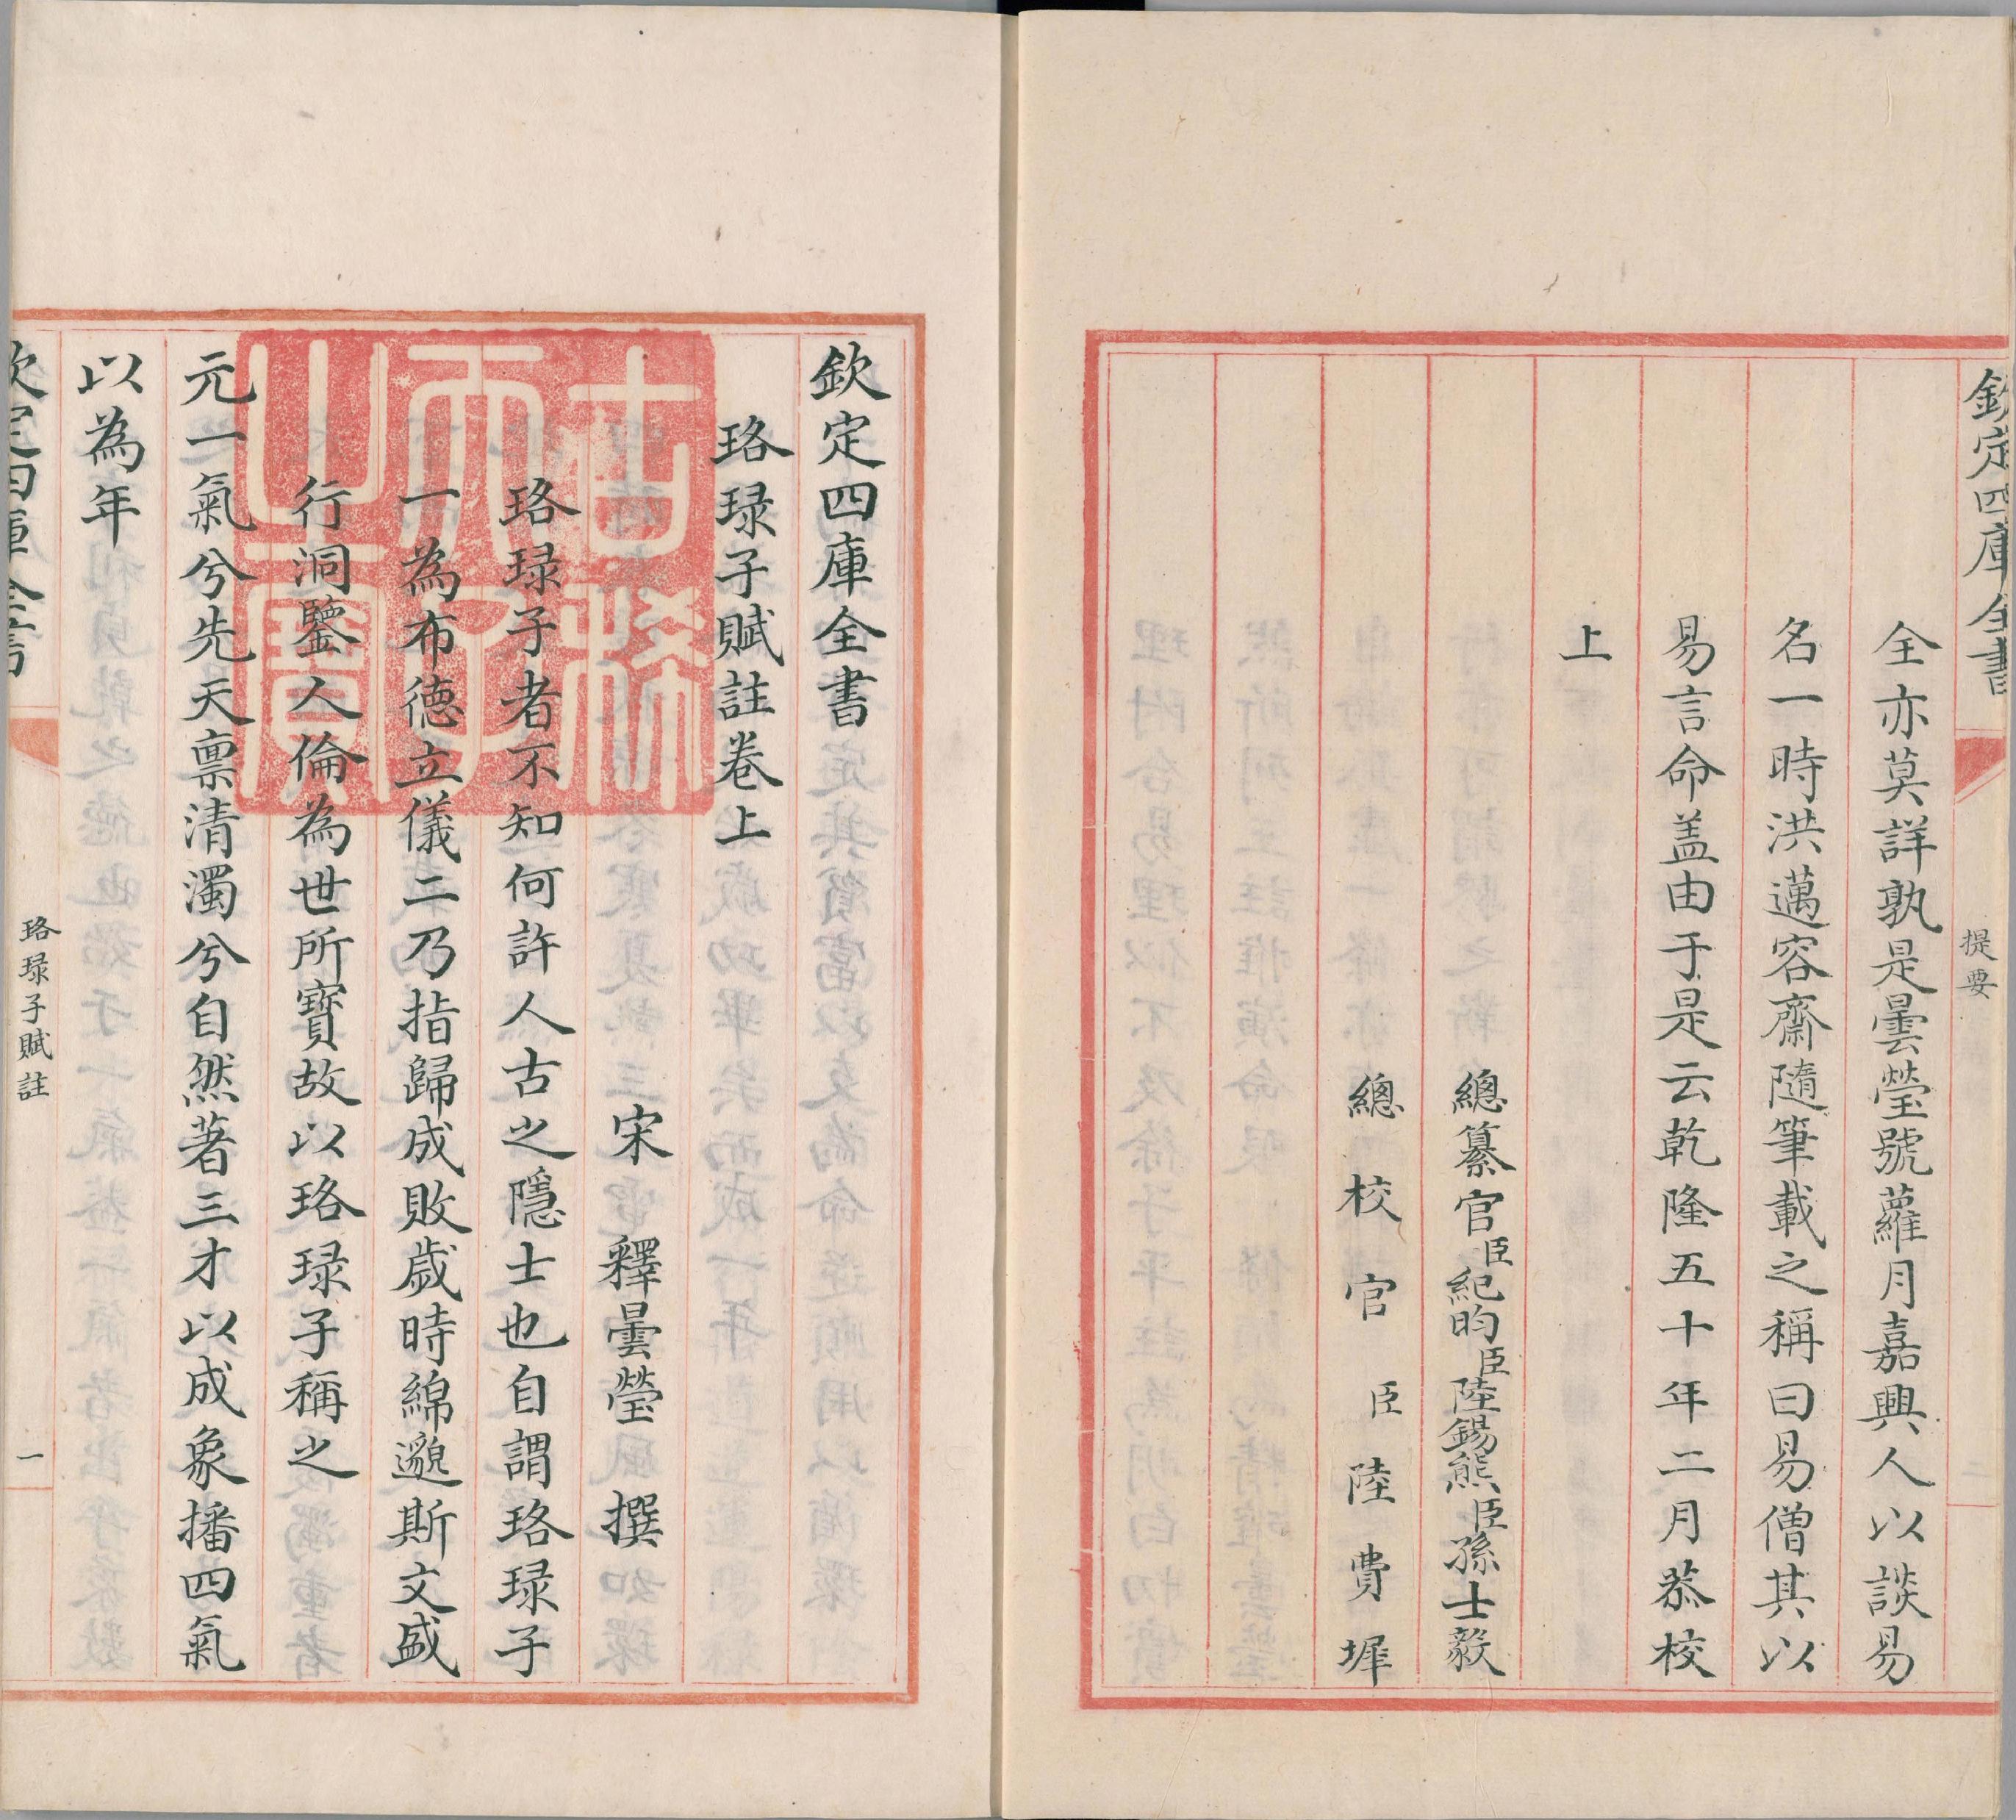 欽定四庫全書
提要
全亦莫詳孰是曇瑩號蘿月嘉興人以談易
名一時洪邁容齋隨筆載之稱曰易僧其以
易言命盖由于是云乾隆五十年二月恭校
上
總纂官臣紀昀臣陸錫熊臣孫士毅
總校官臣陸費墀
欽定四庫全書
珞琭子賦註卷上
宋釋曇瑩撰
珞琭子者不知何許人古之隱士也自謂珞琭子
一為布德立儀二乃指歸成敗歲時綿邈斯文盛
行洞鑒人倫為世所寶故以珞琭子稱之
元一氣兮先天禀清濁兮自然著三才以成象播四氣
以為年
欽定四庫全書
珞琭子賦註
一
古稀天子之寶